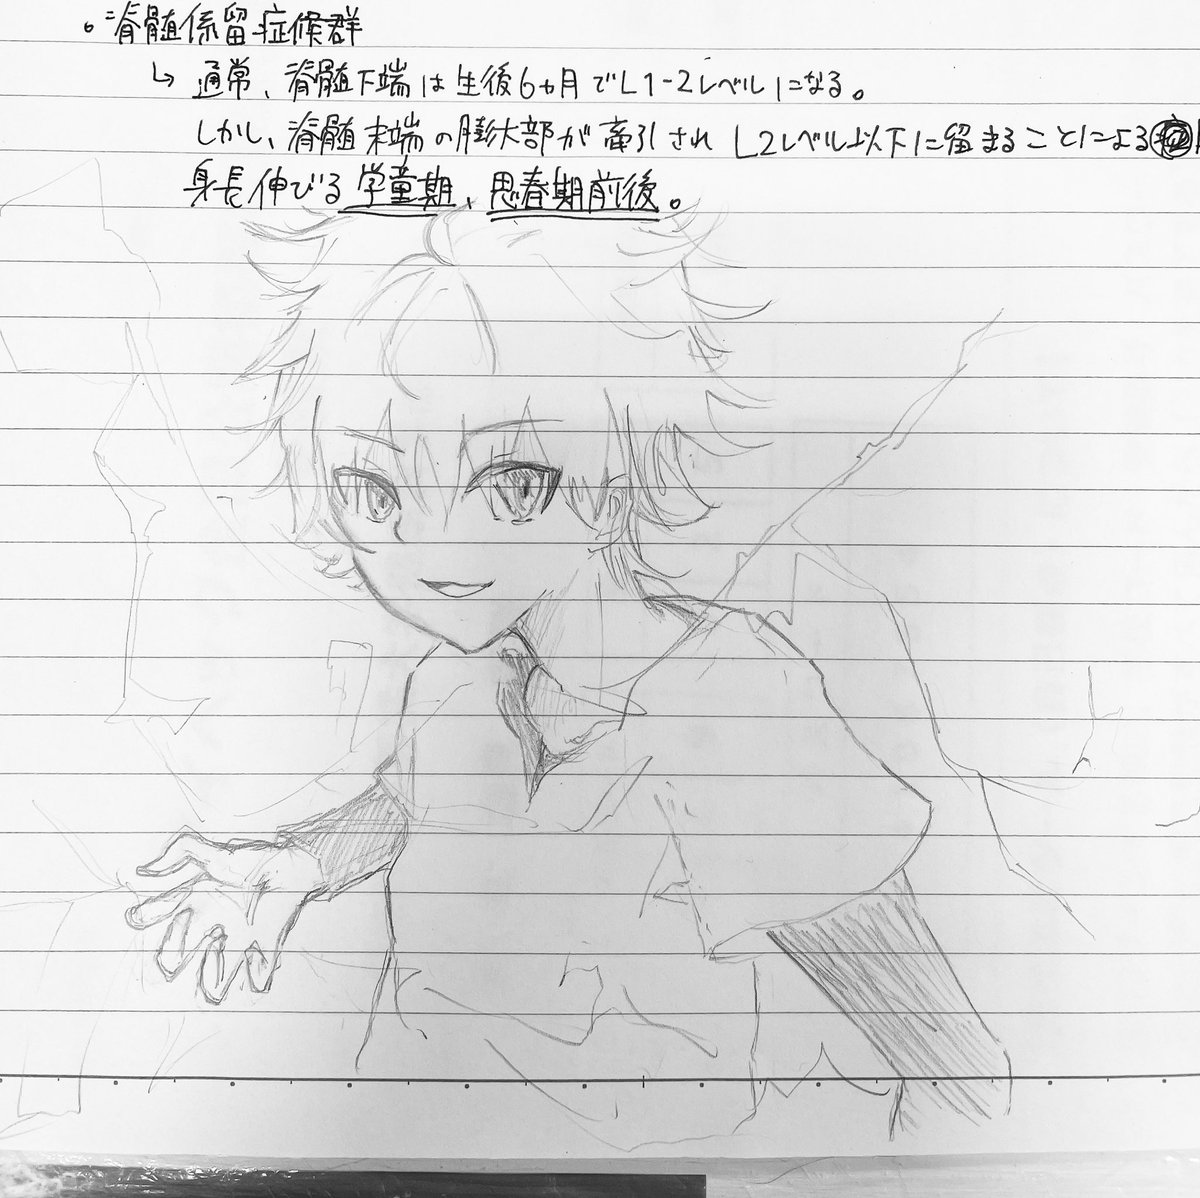 。脊髄係留症候群
↳ 通常、脊髄下端は生後6ヵ月でL1-2レベルになる。
しかし、脊髄末端の膨大部が牽引されL2レベル以下に留まることによる
身長伸びる学童期、思春期前後。